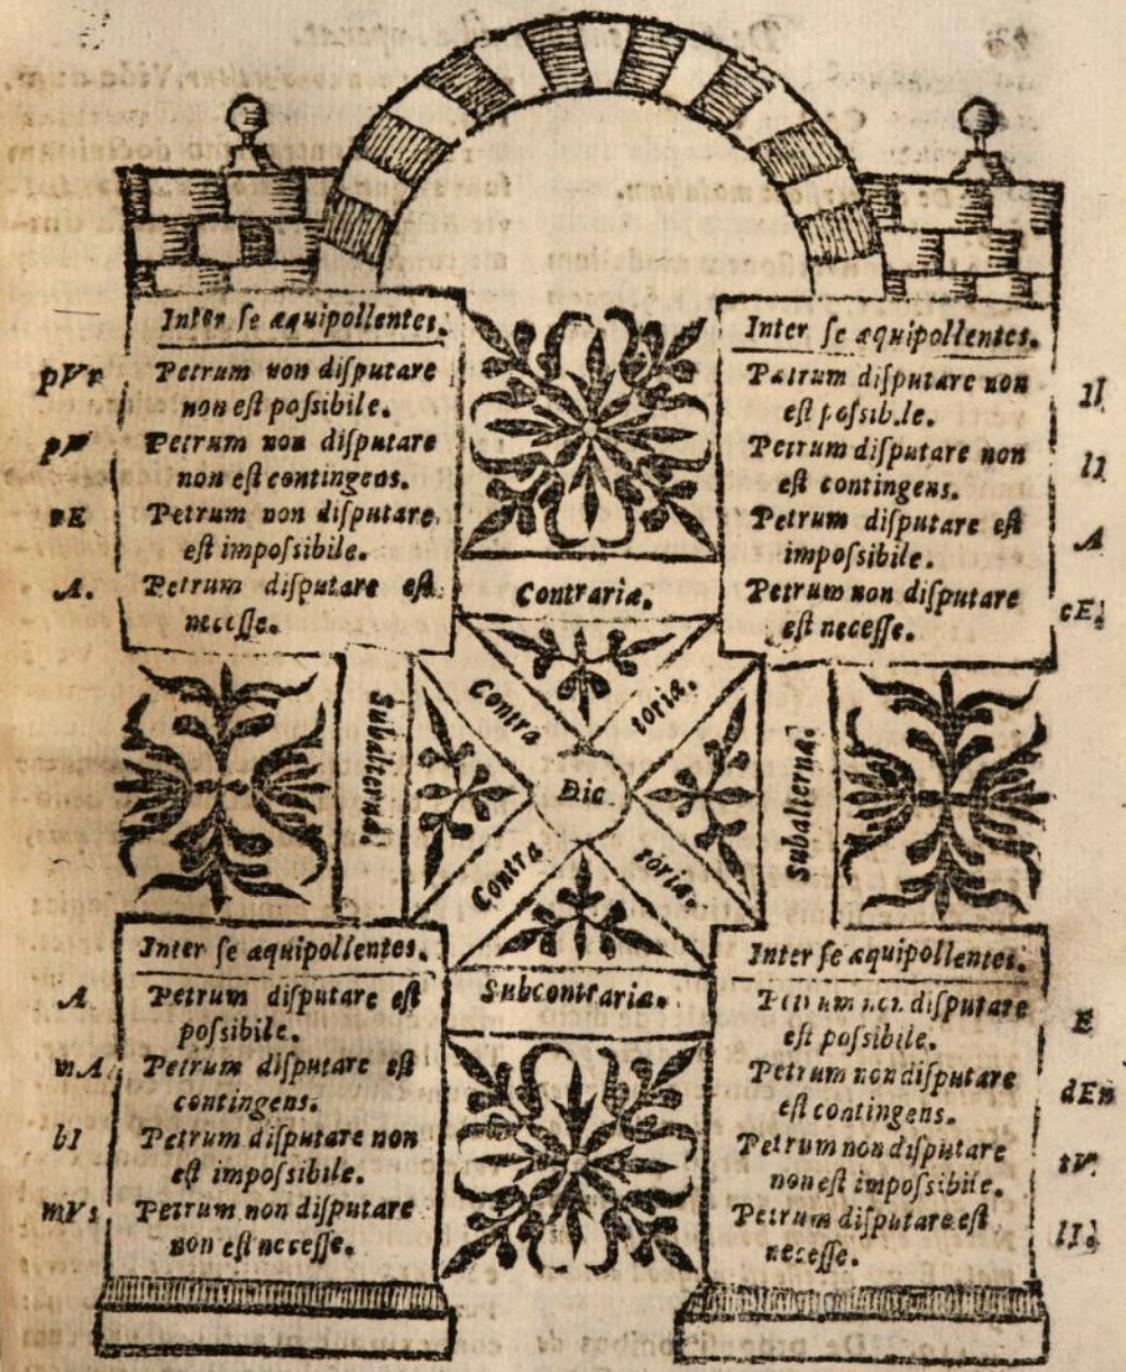 Inter ſe æquipollentes.
pVr Petrum non diſputare
non eſt poſsibile.
pV Petrum non diſputare
non eſt contingens.
rE Petrum non diſputare
eſt impoſsibile.
A. Petrum diſputare eſt
neceſſe.
Inter ſe æquipollentes.
Petrum diſputare non
eſt poſsib.le.
Petrum diſputare non lI
eſt contingens.
Petrum diſputare eſt A
impoſsibile.
Petrum non diſputare cE.
eſt neceſſe.
Contrariæ.
Contra
toriæ.
Dic
Contra
toriæ.
Subalternæ.
Subalternæ.
Subcontrariæ.
Inter ſe æquipollentes.
A Petrum diſputare eſt
poſsibile.
mA Petrum diſputare eſt
contingens.
bI Petrum diſputare non
eſt impoſsibile.
mVs Petrum non diſputare
non eſt neceſſe.
Inter ſe æquipollentes.
Petrum non diſputare E
eſt poſsibile.
Petrum non diſputare dEn
eſt contingens.
Petrum non diſputare tV.
non eſt impoſsibile.
Petrum diſputare eſt lI.
neceſſe.